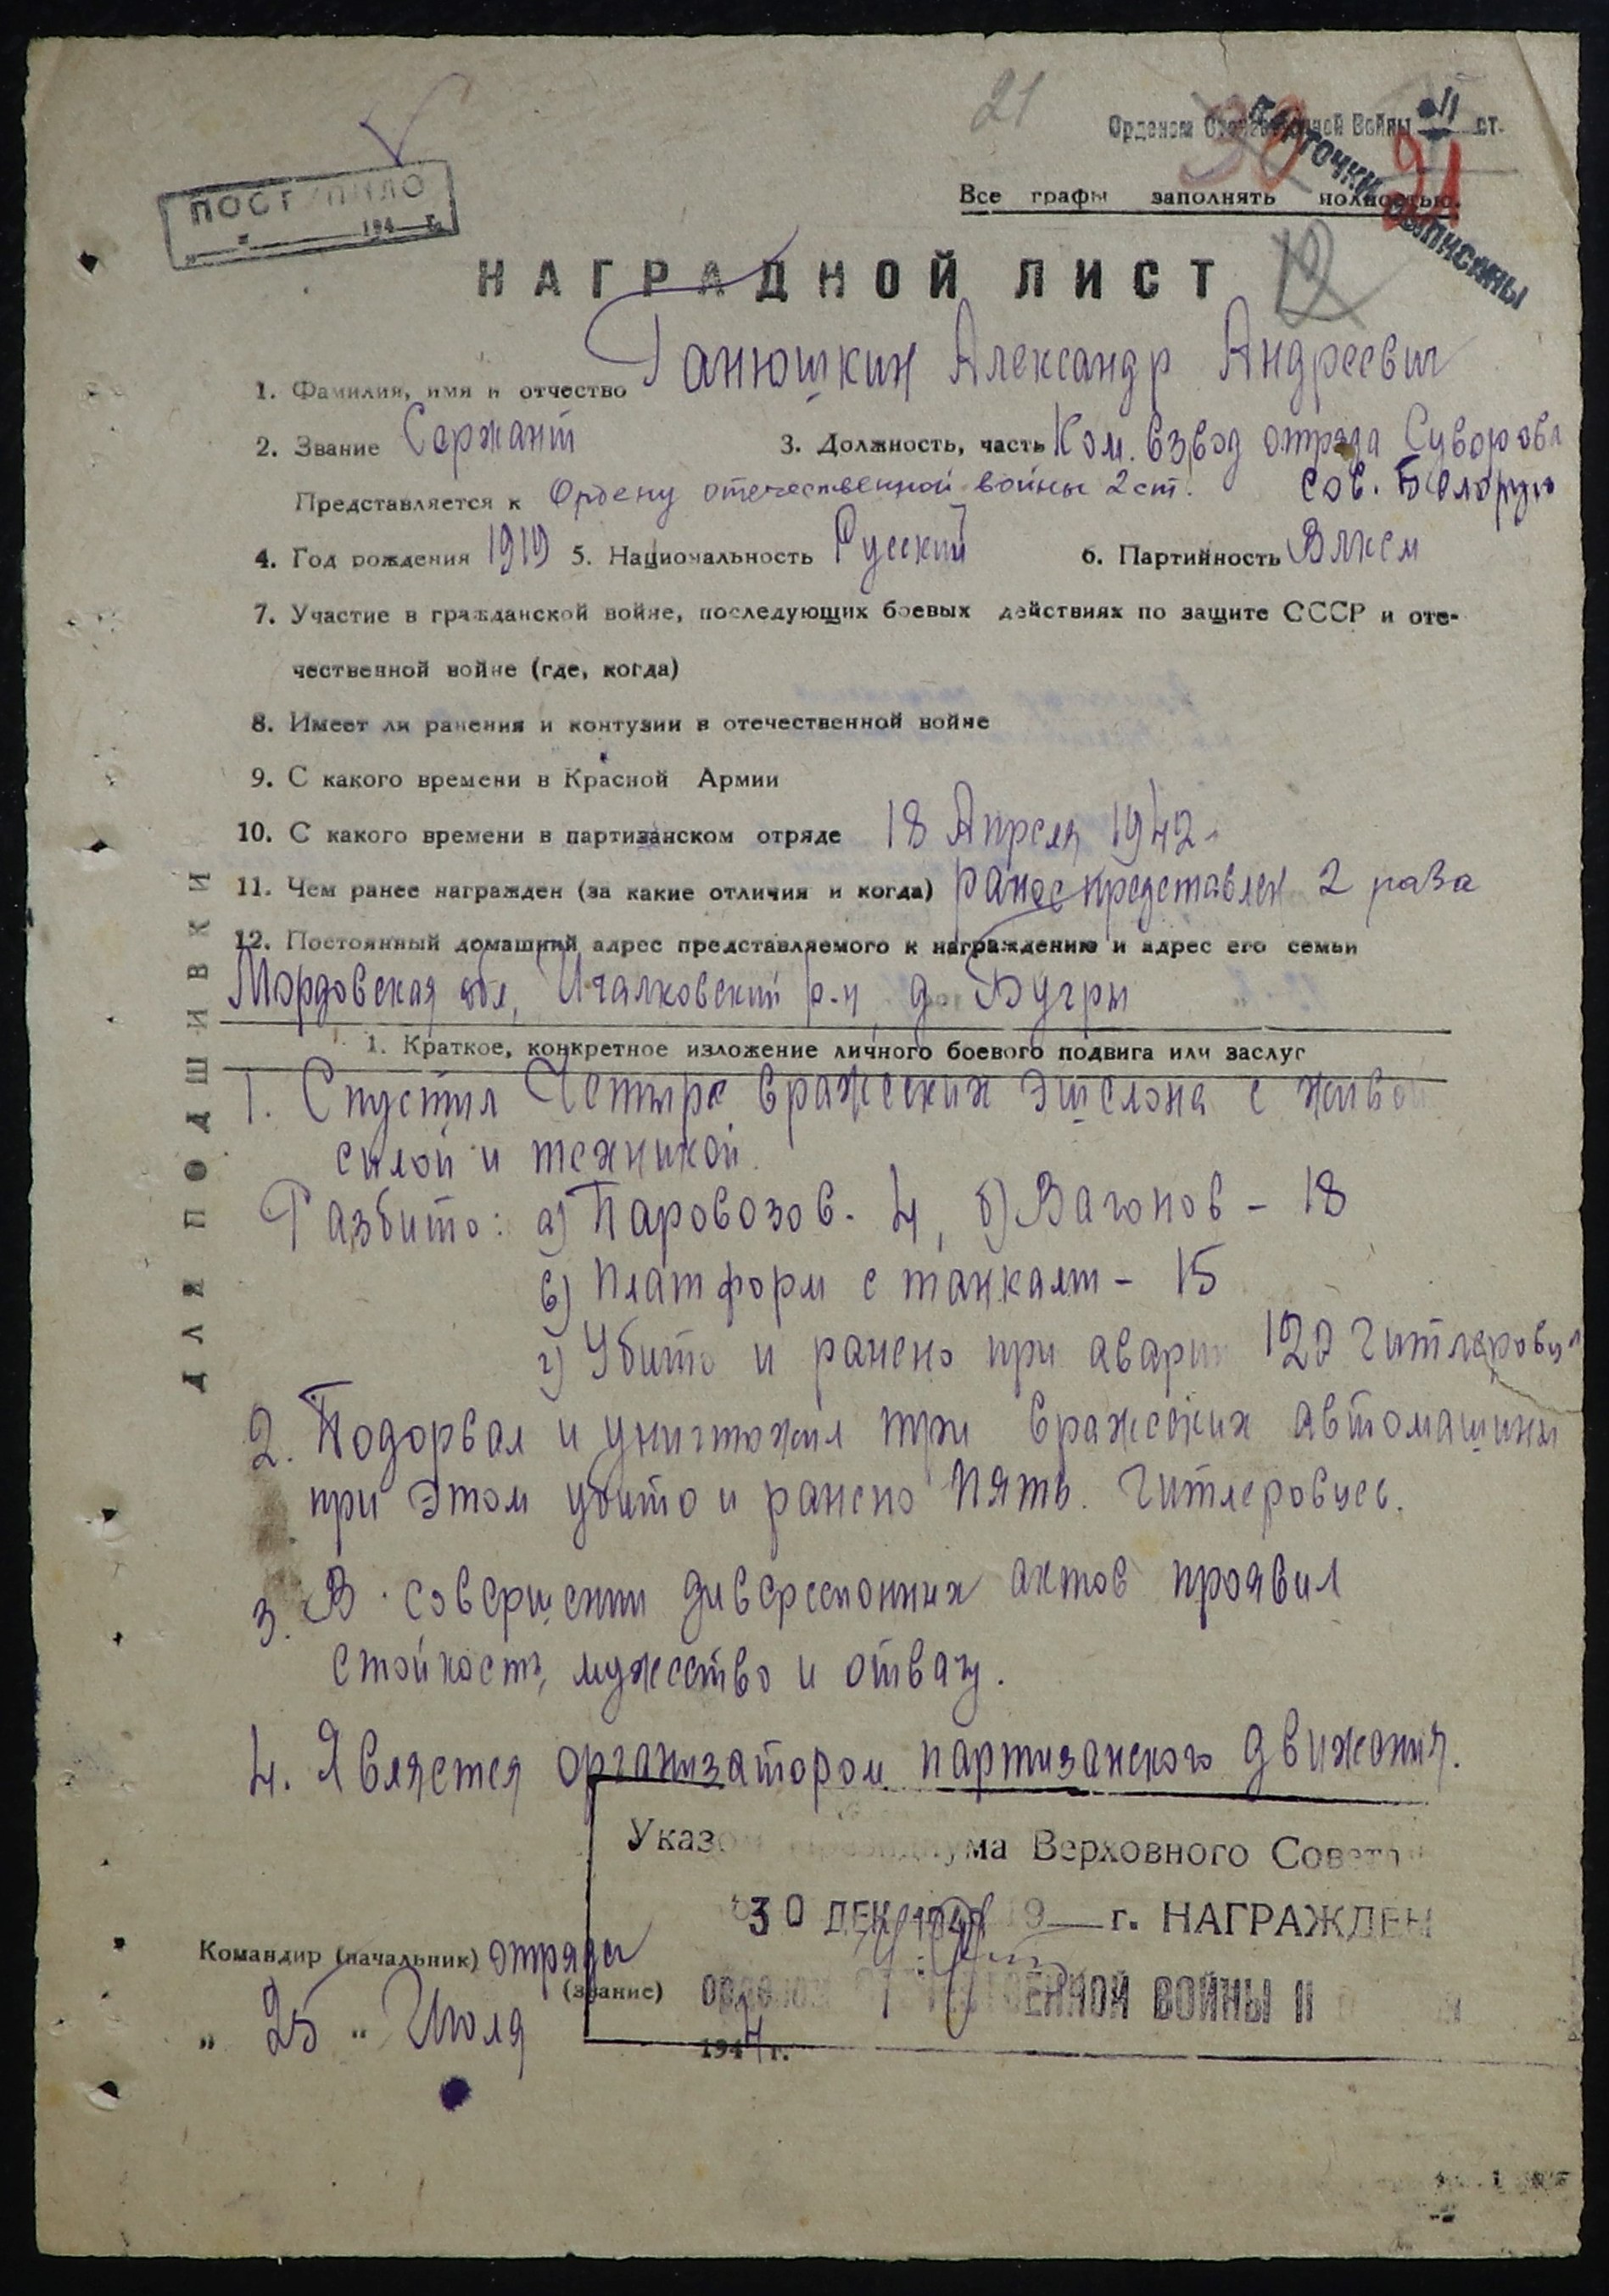 21
Орденом Отечественной Войны II ст.
30 21
карточки выписаны
Все графы заполнять полностью.
ПОСТУПИЛО
194 г.
НАГРАДНОЙ ЛИСТ
1. Фамилия, имя и отчество Ганюшкин Александр Андреевич
2. Звание Сержант 3. Должность, часть Ком. взвод отряда Суворова
Представляется к Ордену отечественной войны 2 ст. Сов. Белорус
4. Год рождения 1919 5. Национальность Русский 6. Партийность Влксм
7. Участие в гражданской войне, последующих боевых действиях по защите СССР и оте-
чественной войне (где, когда)
8. Имеет ли ранения и контузии в отечественной войне
9. С какого времени в Красной Армии
10. С какого времени в партизанском отряде 18 Апреля 1942
11. Чем ранее награжден (за какие отличия и когда) ранее представлен 2 раза
12. Постоянный домашний адрес представляемого к награждению и адрес его семьи
Мордовская обл, Ичалковский р-н, д. Бугры
1. Краткое, конкретное изложение личного боевого подвига или заслуг
1. Спустил Четыре вражеских эшелона с живой
силой и техникой.
Разбито: а) Паровозов - 4, б) Вагонов - 18
в) Платформ с танками - 15
г) Убито и ранено при аварии 120 гитлеровцев
2. Подорвал и уничтожил три вражеских автомашины
при этом убито и ранено пять. гитлеровцев.
3. В совершении диверсионных актов проявил
стойкость, мужество и отвагу.
4. Является организатором партизанского движения.
Указом Президиума Верховного Совета
30 ДЕК 1948 19 г. НАГРАЖДЕН
ОРДЕНОМ ОТЕЧЕСТВЕННОЙ ВОЙНЫ II
Командир (начальник) отряда
(звание)
„ 25 " Июля 1944 г.
ДЛЯ ПОДШИВКИ